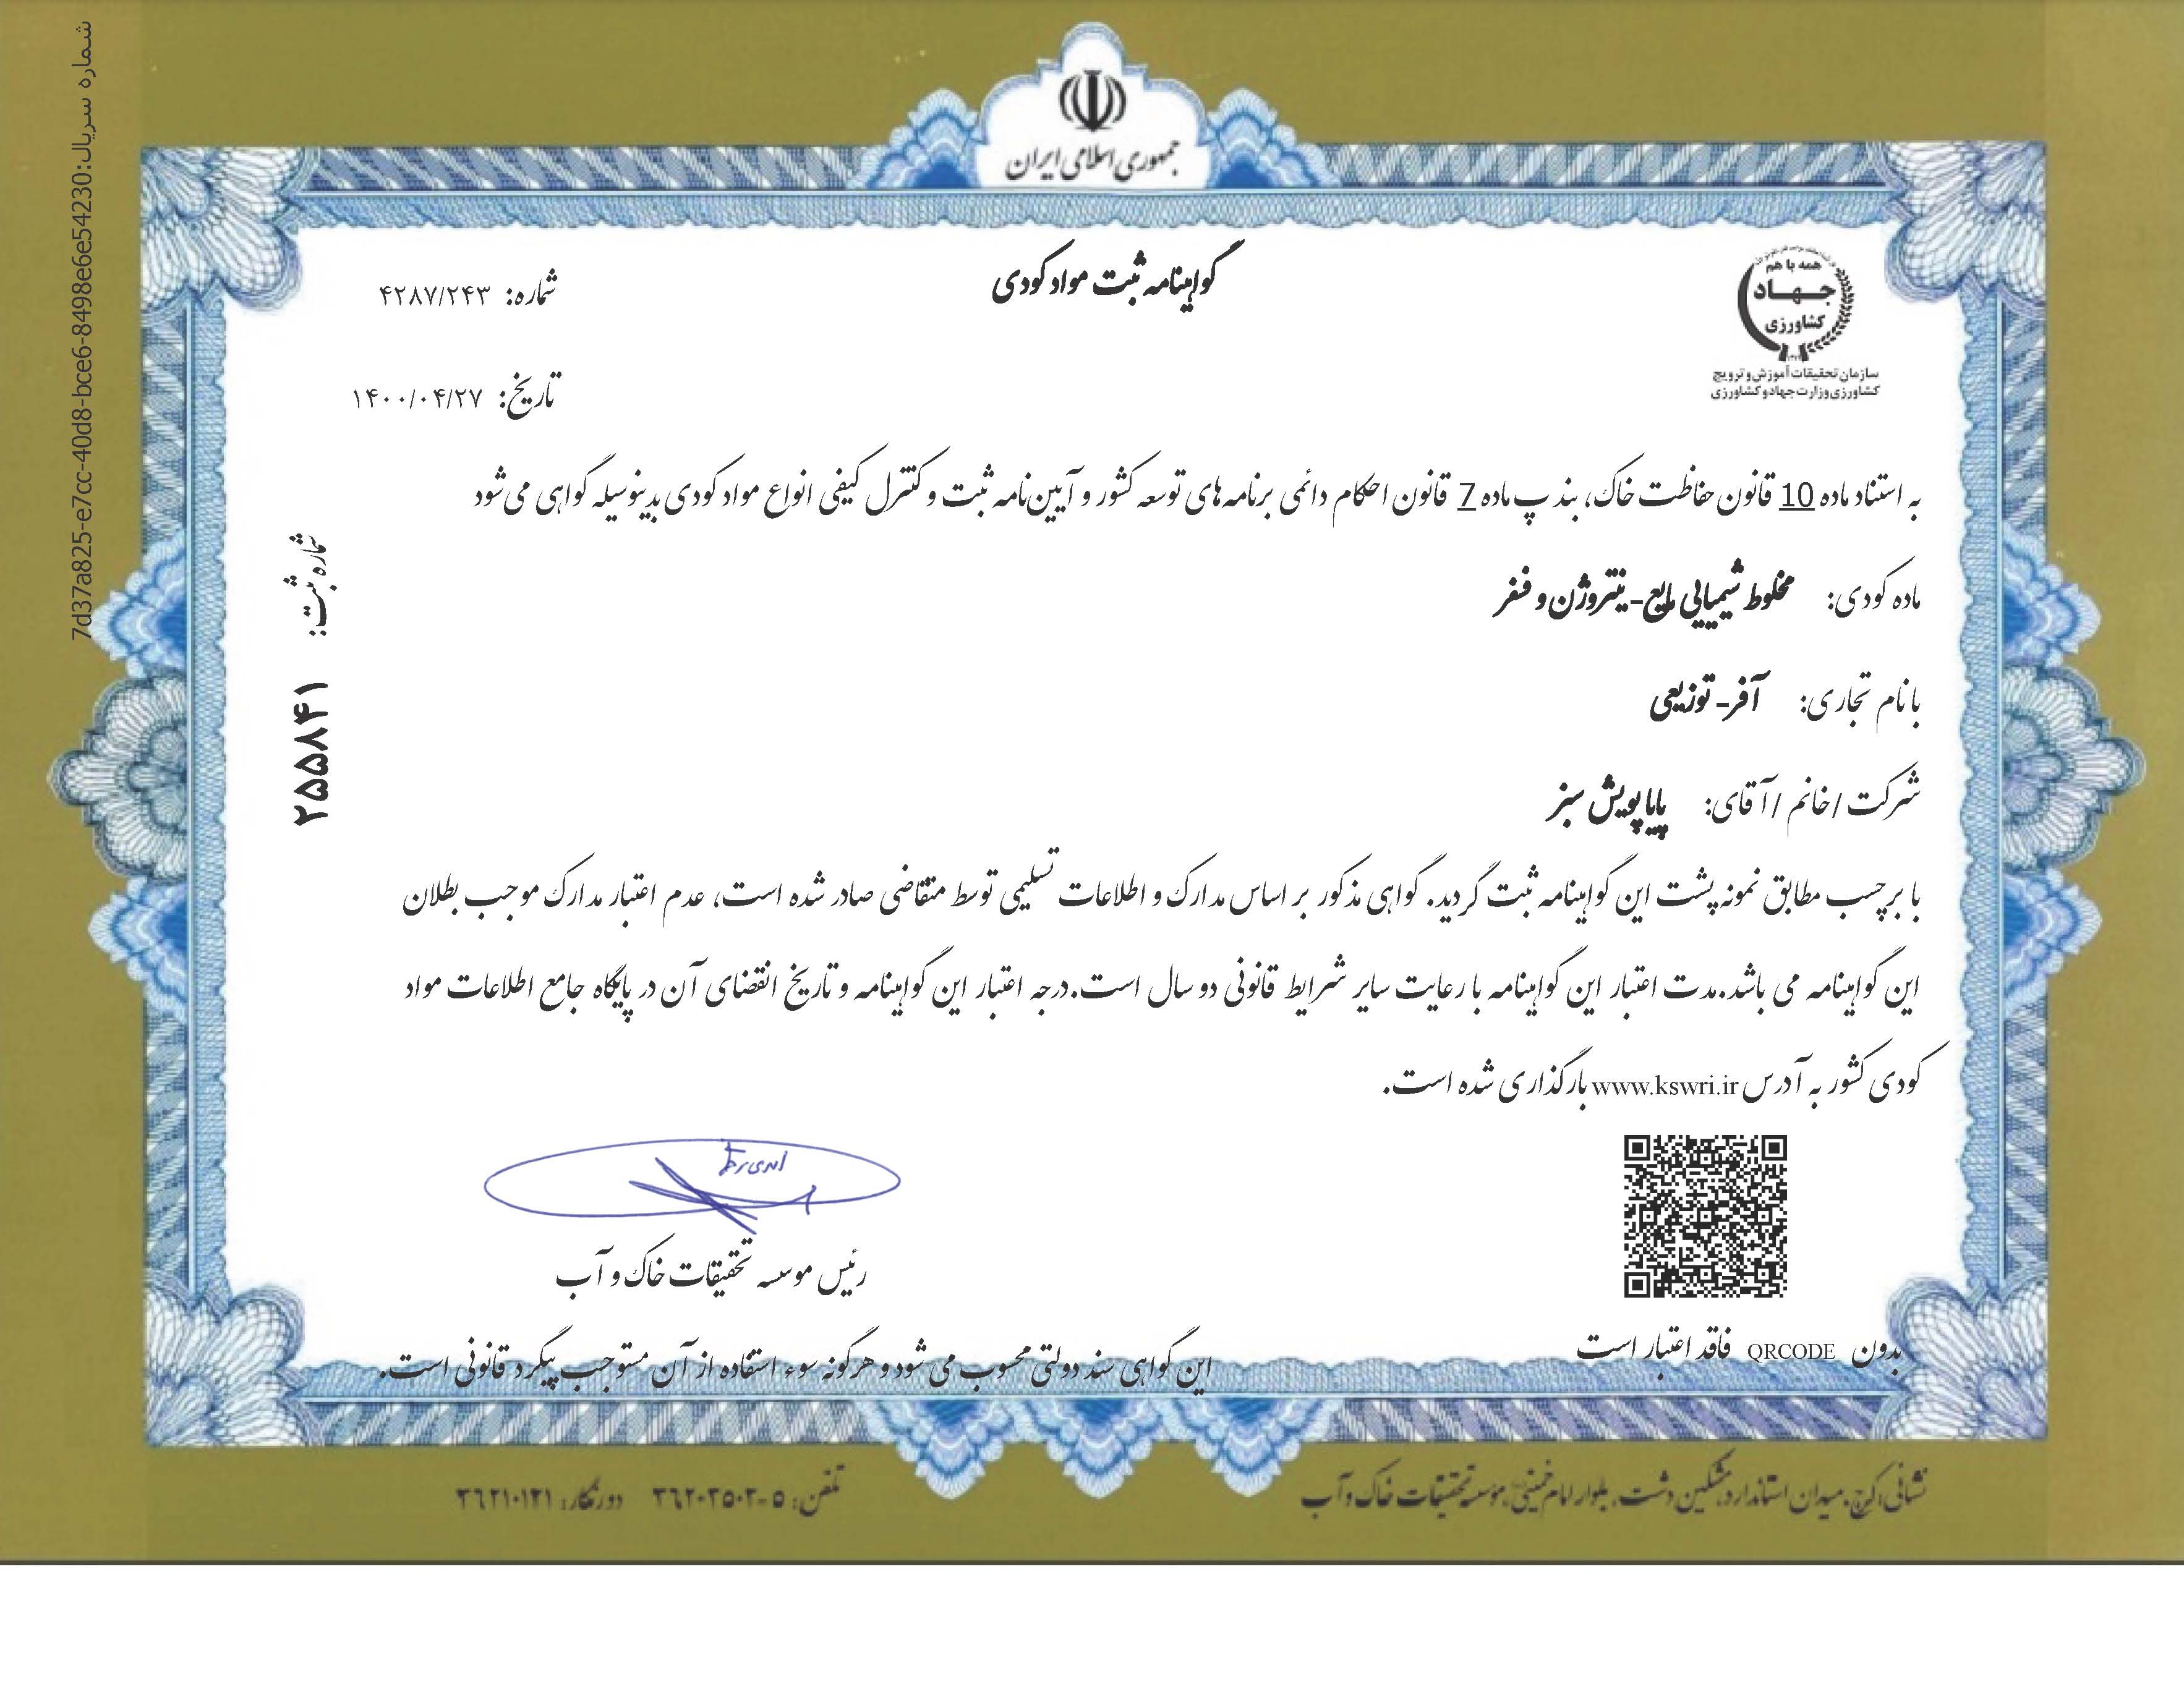 شماره سریال:7d37a825-e7cc-40d8-bce6-8498e6e54230
جمهوری اسلامی ایران
همه با هم
جهاد
کشاورزی
سازمان تحقیقات آموزش و ترویج
کشاورزی وزارت جهاد و کشاورزی
گواهینامه ثبت مواد کودی
شماره: ۴۲۸۷/۲۴۳
تاریخ: ۱۴۰۰/۰۴/۲۷
به استناد ماده 10 قانون حفاظت خاک، بند پ ماده 7 قانون احکام دائمی برنامه های توسعه کشور و آیین‌نامه ثبت و کنترل کیفی انواع مواد کودی بدینوسیله گواهی می‌شود
ماده کودی: مخلوط شیمیایی مایع- نیتروژن و فسفر
با نام تجاری: آفر- توزیعی
شرکت / خانم / آقای: پایا پویش سبز
شماره ثبت: ۲۵۵۸۴۱
با برچسب مطابق نمونه پشت این گواهینامه ثبت گردید. گواهی مذکور بر اساس مدارک و اطلاعات تسلیمی توسط متقاضی صادر شده است، عدم اعتبار مدارک موجب بطلان
این گواهینامه می باشد. مدت اعتبار این گواهینامه با رعایت سایر شرایط قانونی دو سال است. درجه اعتبار این گواهینامه و تاریخ انقضای آن در پایگاه جامع اطلاعات مواد
کودی کشور به آدرس www.kswri.ir بارگذاری شده است.
رئیس موسسه تحقیقات خاک و آب
بدون QRCODE فاقد اعتبار است
این گواهی سند دولتی محسوب می شود و هرگونه سوء استفاده از آن مستوجب پیگرد قانونی است.
نشانی: کرج، میدان استاندارد، مشکین دشت، بلوار امام خمینی، موسسه تحقیقات خاک و آب
تلفن: ۵-۳۶۲۰۲۵۰۲ دورنگار: ۳۶۲۱۰۱۲۱